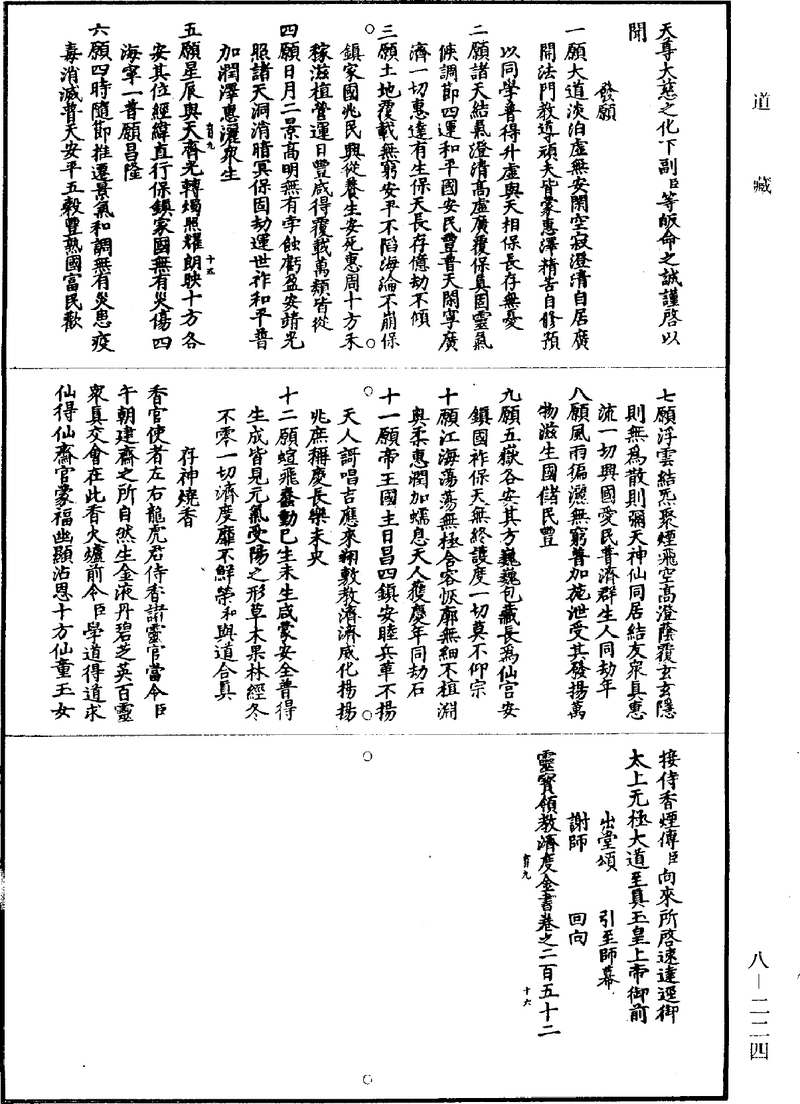 道藏
天尊大慈之化下副臣等皈命之誠謹啓以
聞
發願
一願大道淡泊虛無安閑空寂澄清自居廣
開法門教導頑夫皆蒙惠澤精苦自修預
以同學普得升虛與天相保長存無憂
二願諸天結氣澄清高虛廣覆保真固靈氣
候調節四運和平國安民豐普天閑寧廣
濟一切惠達有生保天長存億劫不傾
三願土地覆載無窮安平不陷海淪不崩保
鎮家國兆民興從養生安死惠周十方禾
稼滋植營運日豐咸得覆載萬類皆從
四願日月二景高明無有孛蝕虧盈安靖光
照諸天洞消暗冥保固劫運世祚和平普
加潤澤惠灑衆生
五願星辰與天齊光轉燭照耀朗映十方各
安其位經緯直行保鎮家國無有災傷四
海寧一普願昌隆
六願四時隨節推遷景氣和調無有災患疫
毒消滅普天安平五穀豐熟國富民歡
七願浮雲結炁聚煙飛空高澄蔭覆玄玄隱
則無爲散則彌天神仙同居結友衆真惠
流一切興國愛民普濟群生人同劫年
八願風雨徧灑無窮普加施泄受其發揚萬
物滋生國儲民豐
九願五嶽各安其方巍巍包藏長爲仙官安
鎮國祚保天無終護度一切莫不仰宗
十願江海蕩蕩無極含容恢廓無細不植淵
奥柔惠潤加蠕息天人獲慶年同劫石
十一願帝王國主日昌四鎮安睦兵革不揚
天人謌唱吉應來翔敷教濟濟威化揚揚
兆庶稱慶長樂未央
十二願蝖飛蠢動已生未生咸蒙安全普得
生成皆見元氣受陽之形草木果林經冬
不零一切濟度靡不鮮榮和與道合真
存神燒香
香官使者左右龍虎君侍香諸靈官當令臣
午朝建齋之所自然生金液丹碧芝英百靈
衆真交會在此香火爐前令臣學道得道求
仙得仙齋官蒙福幽顯沾恩十方仙童玉女
接侍香煙傳臣向來所啓速達逕御
太上无極大道至真玉皇上帝御前
出堂頌 引至師幕
謝師 回向
靈寶領教濟度金書卷之二百五十二
十五
十六
八—二二四